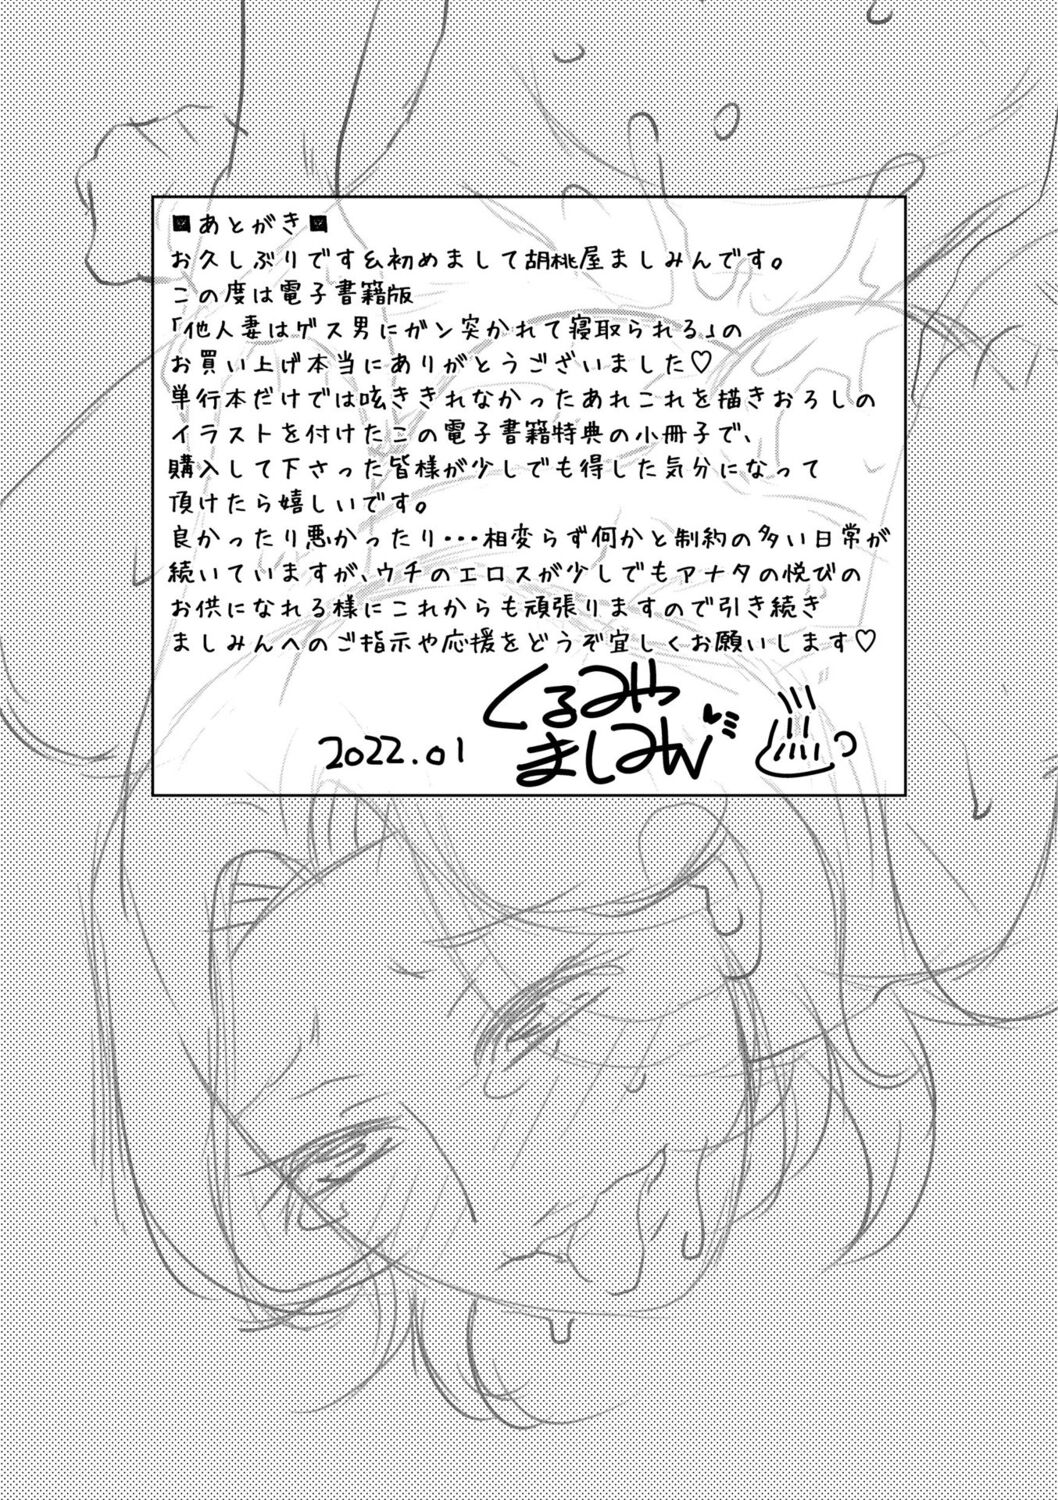 ■あとがき■
お久しぶりです＆初めまして胡桃屋ましみんです。
この度は電子書籍版
「他人妻はゲス男にガン突かれて寝取られる」の
お買い上げ本当にありがとうございました♡
単行本だけでは呟ききれなかったあれこれを描きおろしの
イラストを付けたこの電子書籍特典の小冊子で、
購入して下さった皆様が少しでも得した気分になって
頂けたら嬉しいです。
良かったり悪かったり・・・相変らず何かと制約の多い日常が
続いていますが、ウチのエロスが少しでもアナタの悦びの
お供になれる様にこれからも頑張りますので引き続き
ましみんへのご指示や応援をどうぞ宜しくお願いします♡
くるみや
ましみん
2022.01